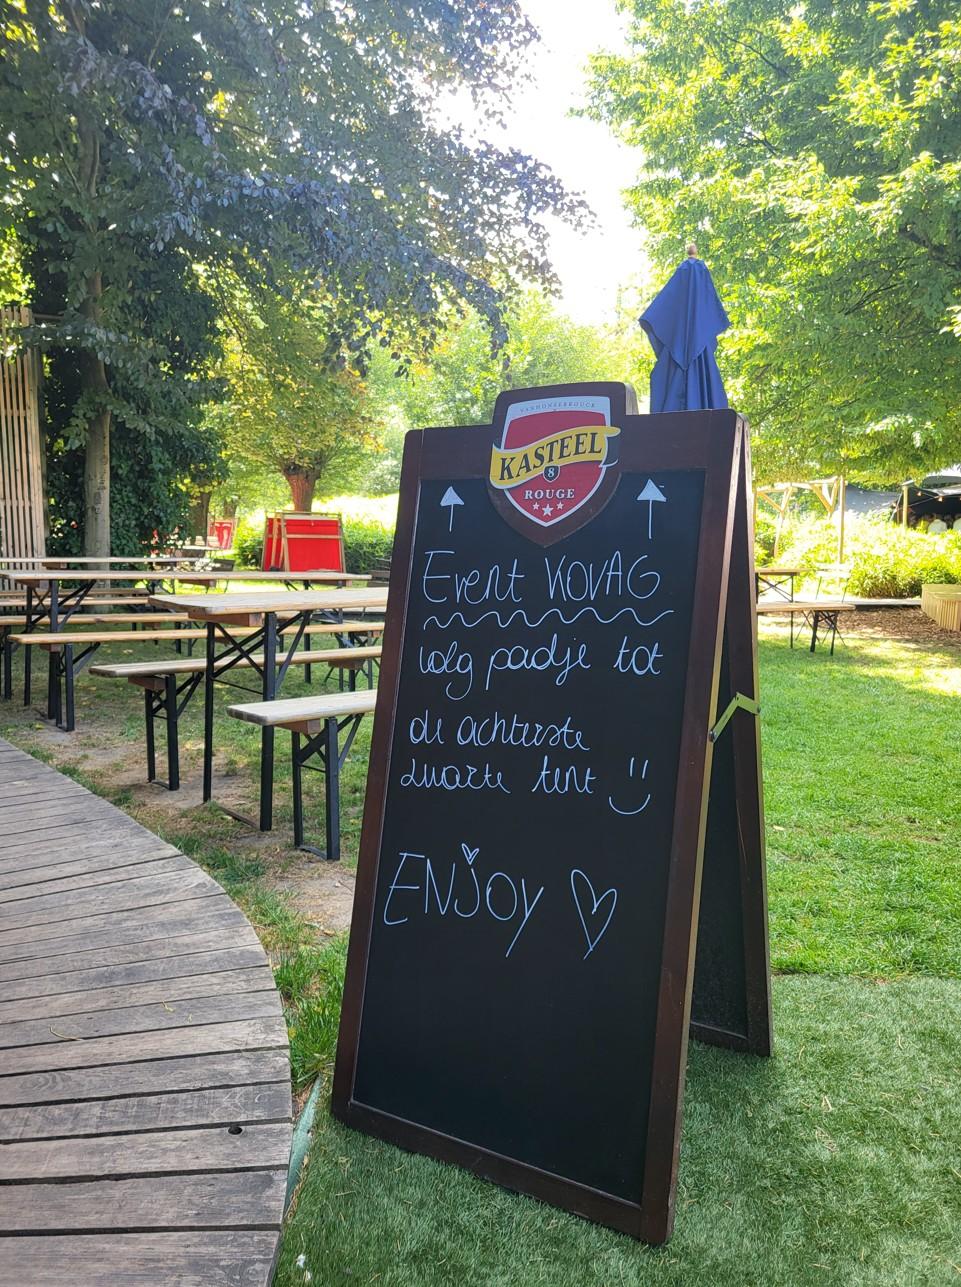 VANHONSEBROUCK
KASTEEL
8
ROUGE
Event KOVAG
volg padje tot
de achterste
zwarte tent
ENJOY